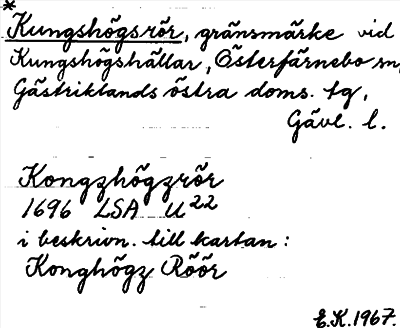 *
Kungshögsrör, gränsmärke vid
Kungshögshällar, Österfärnebo sn,
Gästriklands östra doms. tg,
Gävl. l.
Kongzhögzrör
1696 LSA U22
i beskrivn. till kartan:
Konghögz Röör
E.K. 1967.